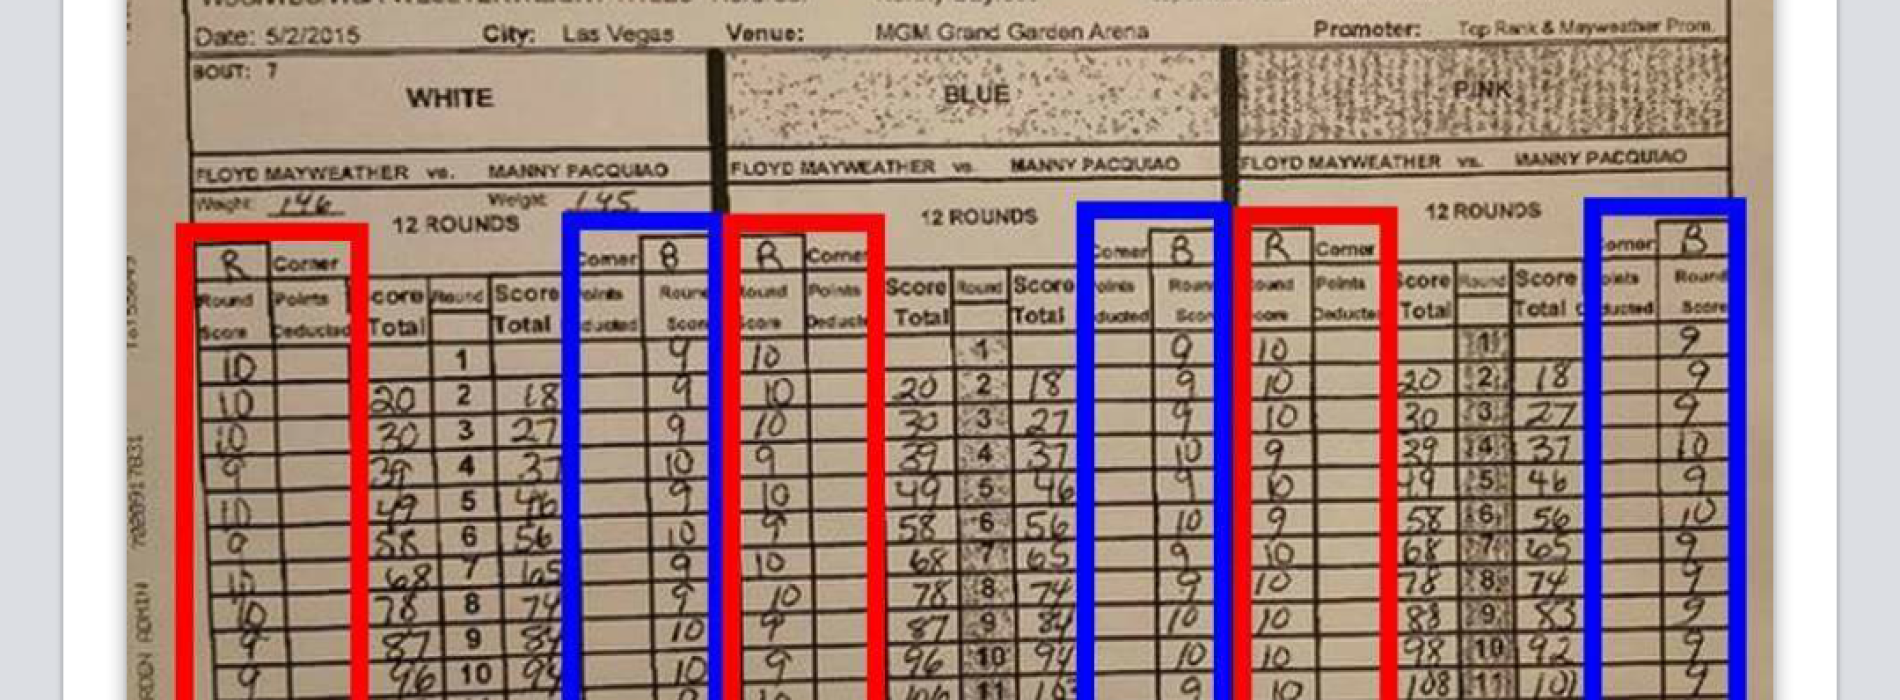 Date: 5/2/2015 City: Las Vegas Venue: MGM Grand Garden Arena Promoter: Top Rank & Mayweather Prom.
BOUT: 7
WHITE BLUE PINK
FLOYD MAYWEATHER vs. MANNY PACQUIAO FLOYD MAYWEATHER vs. MANNY PACQUIAO FLOYD MAYWEATHER vs. MANNY PACQUIAO
Weight: 146 Weight: 145
12 ROUNDS 12 ROUNDS 12 ROUNDS
R Corner Corner B R Corner Corner B R Corner Corner B
Round Points Score Round Score Points Round Round Points Score Round Score Points Round Round Points Score Round Score Points Round
Score Deducted Total Total Deducted Score Score Deducted Total Total Deducted Score Score Deducted Total Total Deducted Score
10 1 9 10 1 9 10 1 9
10 20 2 18 9 10 20 2 18 9 10 20 2 18 9
10 30 3 27 9 10 30 3 27 9 10 30 3 27 9
9 39 4 37 10 9 39 4 37 10 9 39 4 37 10
10 49 5 46 9 10 49 5 46 9 10 49 5 46 9
9 58 6 56 10 9 58 6 56 10 9 58 6 56 10
10 68 7 65 9 10 68 7 65 9 10 68 7 65 9
10 78 8 74 9 10 78 8 74 9 10 78 8 74 9
9 87 9 84 10 9 87 9 84 10 10 88 9 83 9
9 96 10 94 10 9 96 10 94 10 10 98 10 92 9
10 106 11 103 9 10 108 11 101 9